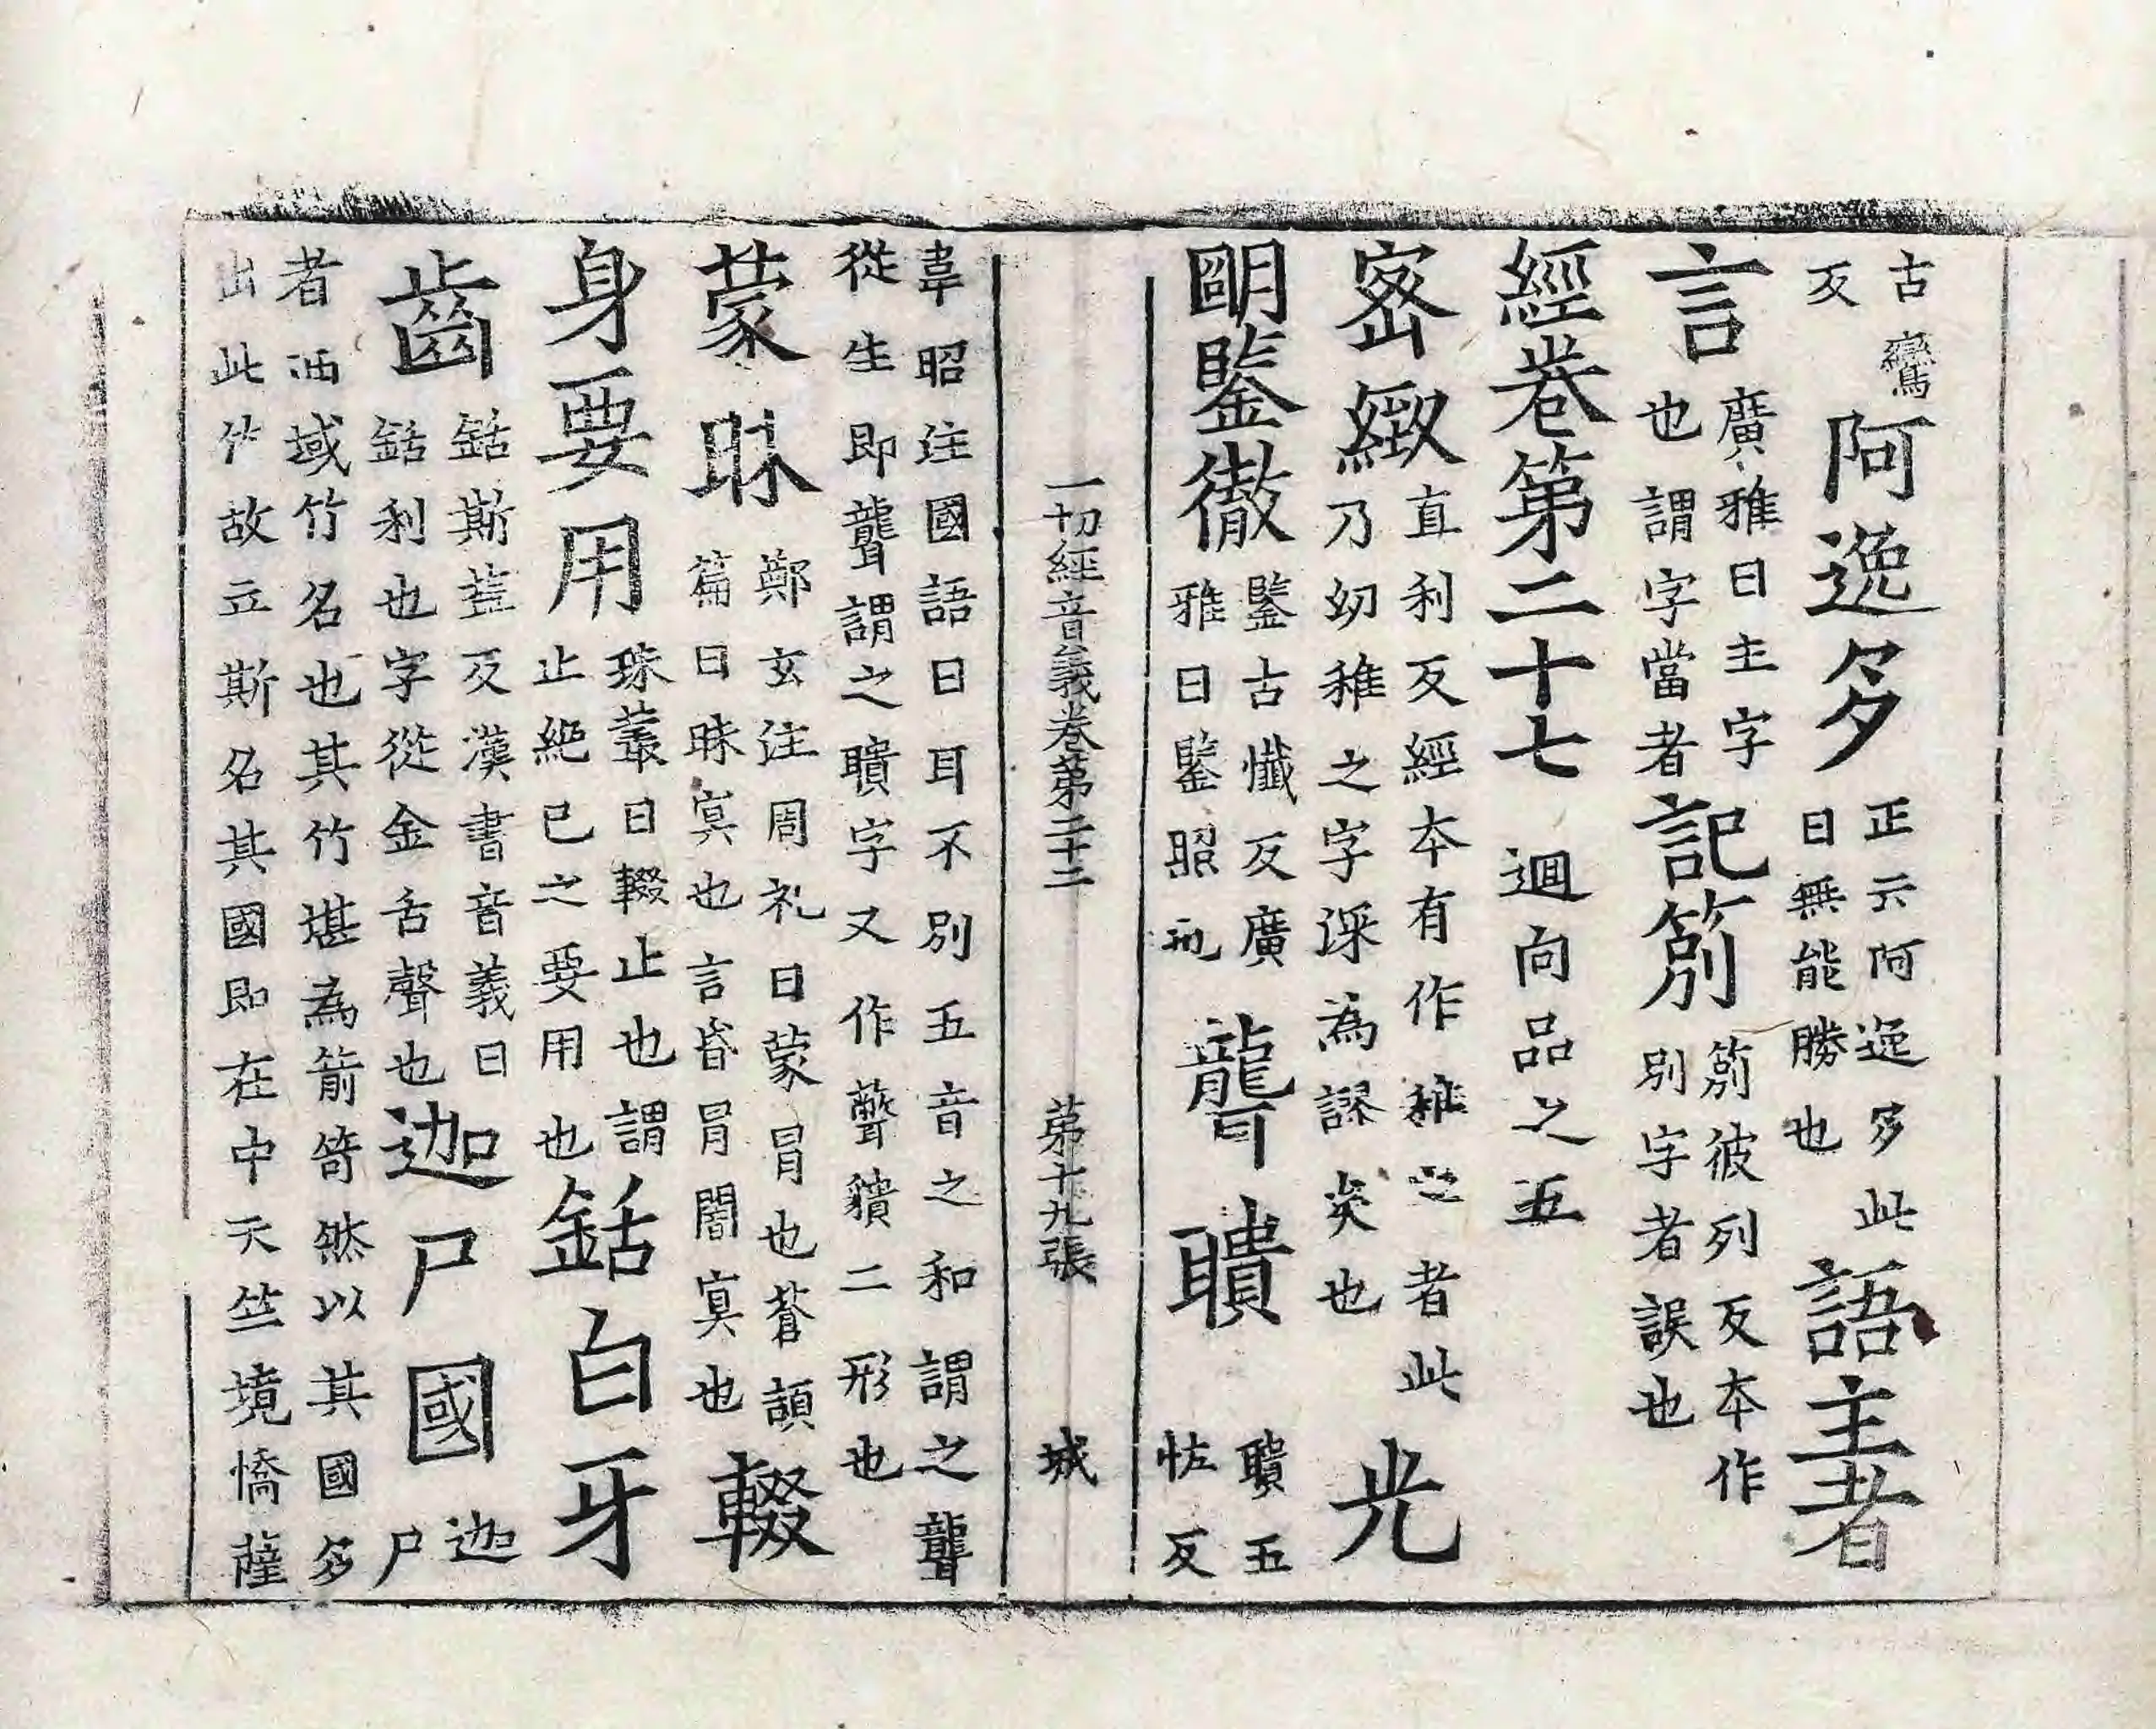 古鸞反阿逸多正云阿逸多此曰無能勝也語主者
言廣雅曰主字也謂字當者記莂莂彼列反本作別字者誤也
經卷第二十七 迴向品之五
密緻直利反經本有作稚之者此乃幼稚之字深為謬矣也光
明鑒徹鑒古懺反廣雅曰鑒照也聾聵聵五怪反
一切經音義卷第二十二 第十九張 城
韋昭注國語曰耳不別五音之和謂之聾
從生即聾謂之聵字又作聱䝿二形也
蒙昧鄭玄注周礼曰蒙冒也蒼頡篇曰昧冥也言昏冐闇冥也輟
身要用珠叢曰輟止也謂止絶已之要用也銛白牙
齒銛斯葢反漢書音義曰銛利也字從金舌聲也迦尸國迦尸
者西域竹名也其竹堪為箭笴然以其國多
出此竹故立斯名其國即在中天竺境憍薩